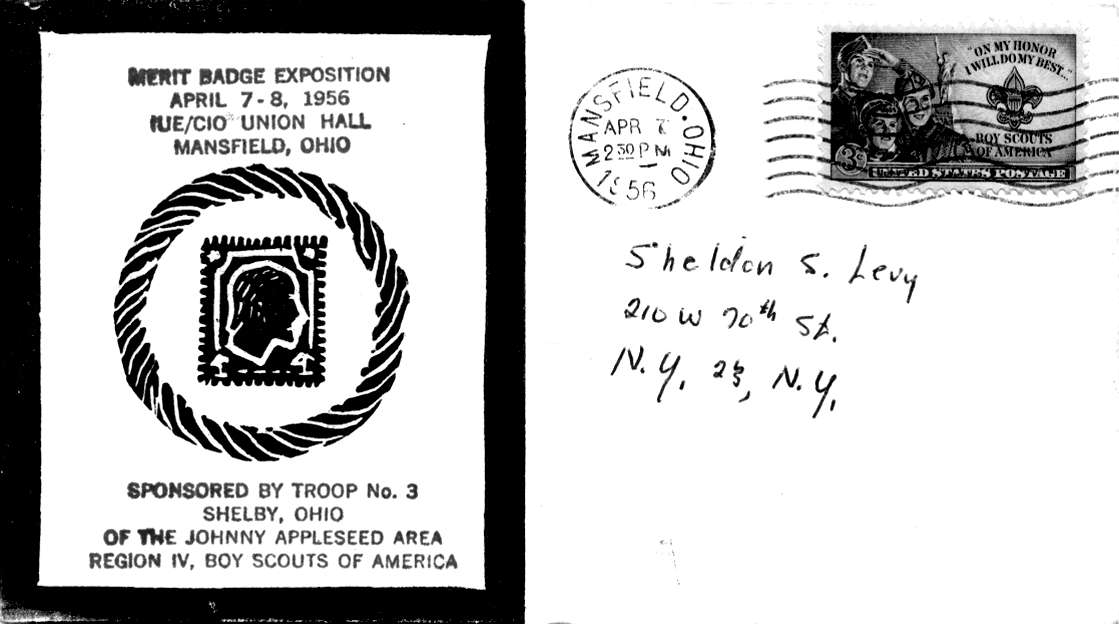 MERIT BADGE EXPOSITION
APRIL 7-8, 1956
IUE/CIO UNION HALL
MANSFIELD, OHIO
SPONSORED BY TROOP No. 3
SHELBY, OHIO
OF THE JOHNNY APPLESEED AREA
REGION IV, BOY SCOUTS OF AMERICA
MANSFIELD. OHIO
APR 7
2 30 PM
1956
"ON MY HONOR
I WILL DO MY BEST..."
BOY SCOUTS
OF AMERICA
3¢
UNITED STATES POSTAGE
Sheldon S. Levy
210 W 70th St.
N.Y. 23, N.Y.